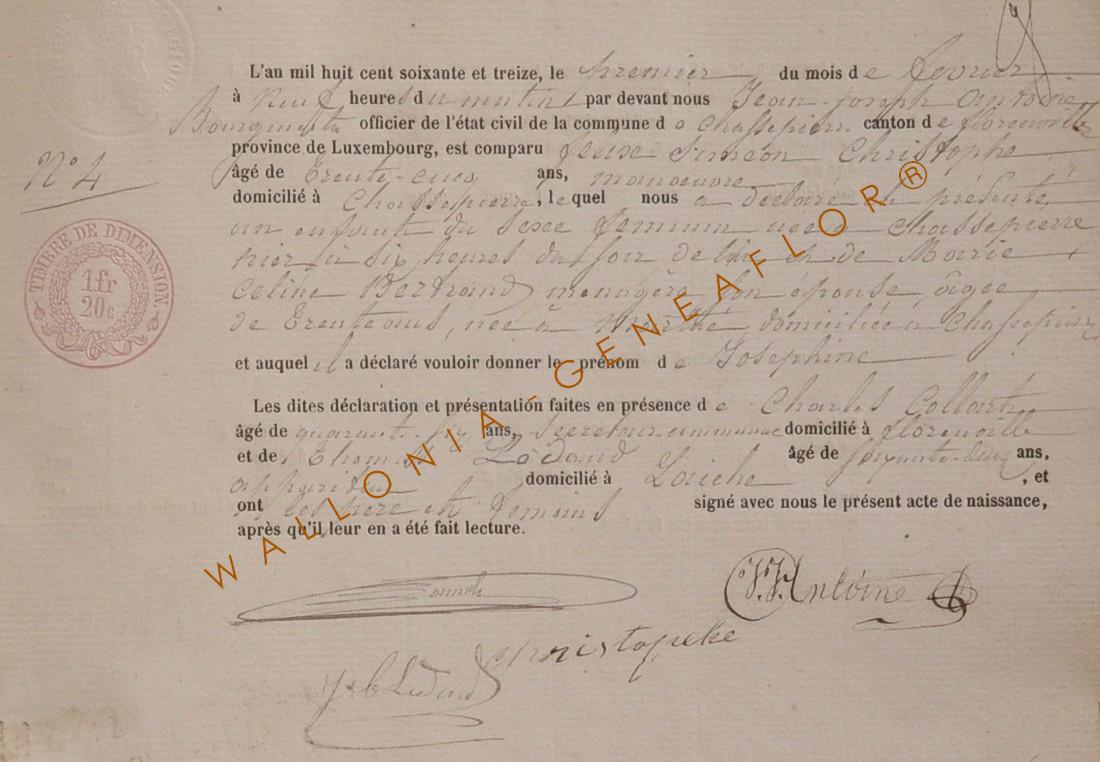 L'an mil huit cent soixante et treize, le premier du mois de fevrier
à neuf heures du matin par devant nous Jean-joseph Antoine
Bourgmestre officier de l'état civil de la commune de Chassepierre canton de florenville
province de Luxembourg, est comparu Simeon Christophe
N° 4
âgé de trente-cinq ans, manoeuvre
domicilié à Chassepierre, lequel nous a déclaré et presenté
un enfant du sexe feminin née a Chassepierre
hier à six heures du soir de lui et de Marie
Celine Bertrand, menagère son épouse, âgée
de trente ans, née à domiciliée a Chassepierre
et auquel il a déclaré vouloir donner le prénom de Josephine
Les dites déclaration et présentation faites en présence de Charles Collart
âgé de quarante ans, secretaire communal domicilié à florenville
et de Ledand âgé de ans,
domicilié à Laiche, et
ont les père et temoins signé avec nous le présent acte de naissance,
après qu'il leur en a été fait lecture.
TIMBRE DE DIMENSION
1 fr
20 c
WALLONIA-GENEAFLOR®
J.J. Antoine
christophe